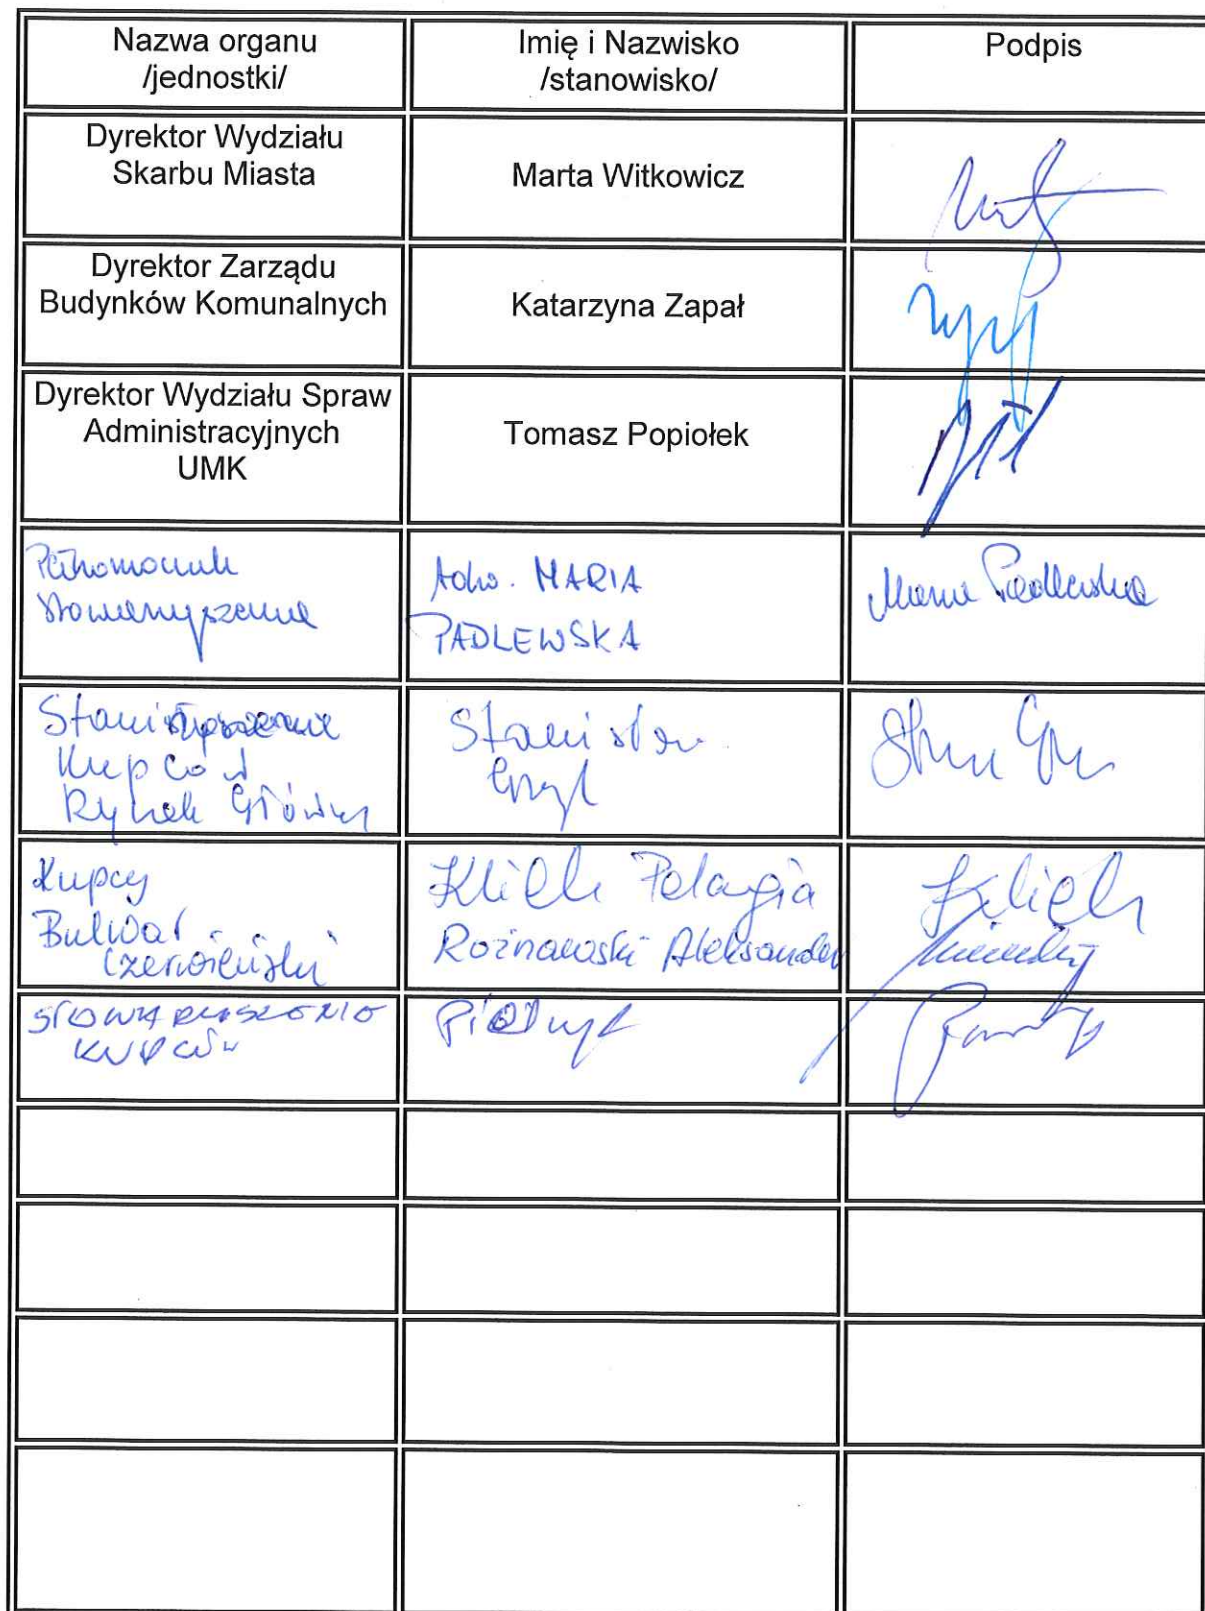 Nazwa organu
/jednostki/
Imię i Nazwisko
/stanowisko/
Podpis
Dyrektor Wydziału
Skarbu Miasta
Marta Witkowicz
Dyrektor Zarządu
Budynków Komunalnych
Katarzyna Zapał
Dyrektor Wydziału Spraw
Administracyjnych
UMK
Tomasz Popiołek
Pełnomocnik
Stowarzyszenia
Adw. MARIA
PADLEWSKA
Maria Padlewska
Kupców
Rynek Główny
Stanisław
Kupcy
Bulwar
Czerwieński
Klich Pelagia
Rożnawski Aleksander
Klich
STOWARZYSZENIE
KUPCÓW